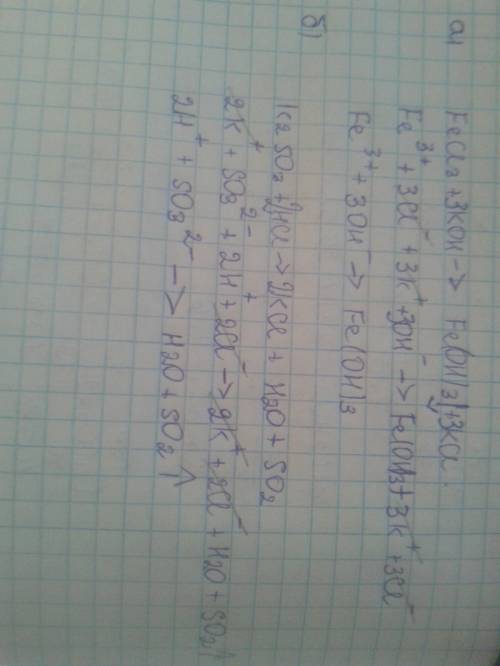 а) FeCl3 + 3KOH → Fe(OH)3↓ + 3KCl.
Fe³⁺ + 3Cl⁻ + 3K⁺ + 3OH⁻ → Fe(OH)3 + 3K⁺ + 3Cl⁻
Fe³⁺ + 3OH⁻ → Fe(OH)3
б) K2SO3 + 2HCl → 2KCl + H2O + SO2
2K⁺ + SO3²⁻ + 2H⁺ + 2Cl⁻ → 2K⁺ + 2Cl⁻ + H2O + SO2↑
2H⁺ + SO3²⁻ → H2O + SO2↑